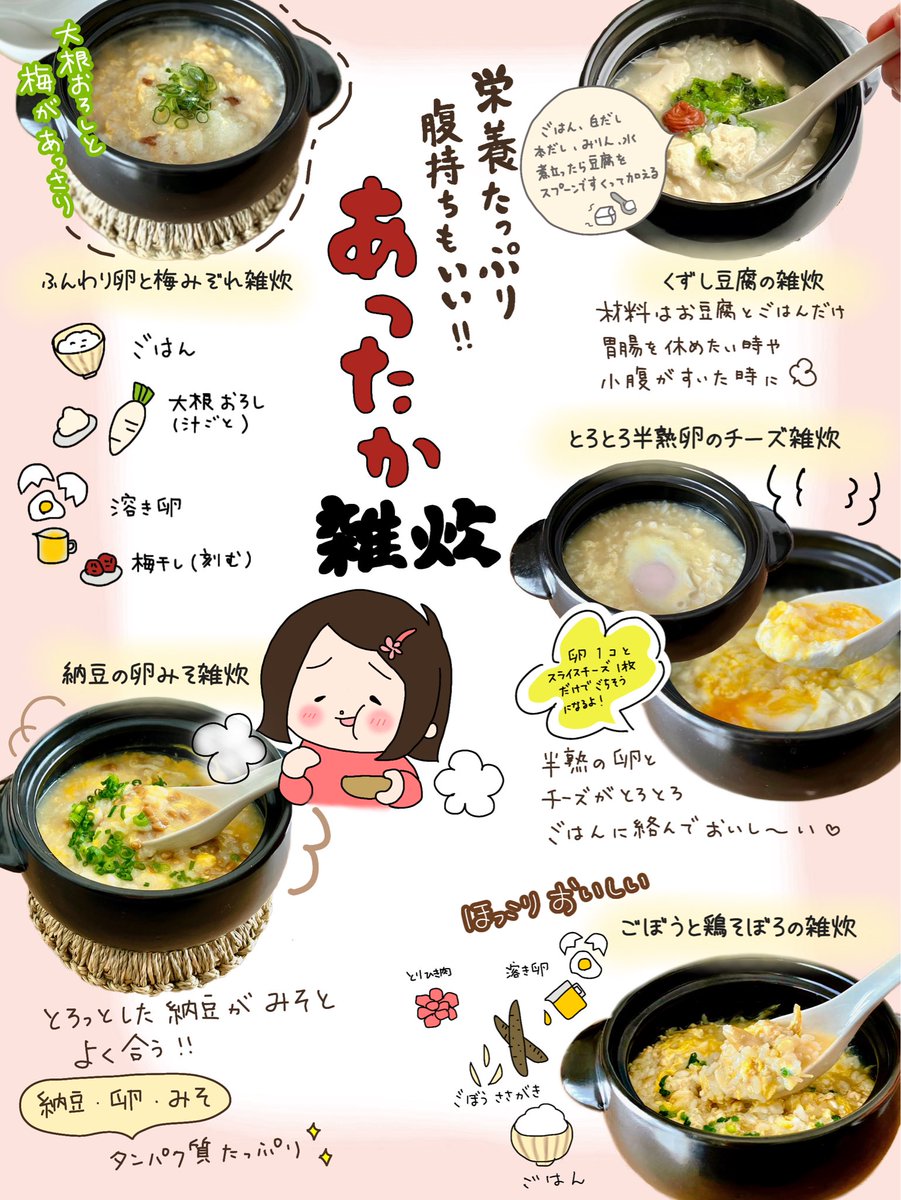 栄養たっぷり
腹持ちもいい!!
あったか
雑炊
大根おろしと
梅があっさり
ふんわり卵と梅みぞれ雑炊
ごはん
大根おろし
(汁ごと)
溶き卵
梅干し(刻む)
ごはん、白だし
本だし、みりん、水
煮立ったら豆腐を
スプーンですくって加える
くずし豆腐の雑炊
材料はお豆腐とごはんだけ
胃腸を休めたい時や
小腹がすいた時に
とろとろ半熟卵のチーズ雑炊
卵1コと
スライスチーズ1枚
だけでごちそう
になるよ!
半熟の卵と
チーズがとろとろ
ごはんに絡んでおいし〜い♡
納豆の卵みそ雑炊
とろっとした納豆がみそと
よく合う!!
納豆・卵・みそ
タンパク質たっぷり
ほっこりおいしい
ごぼうと鶏そぼろの雑炊
とりひき肉
溶き卵
ごぼうささがき
ごはん